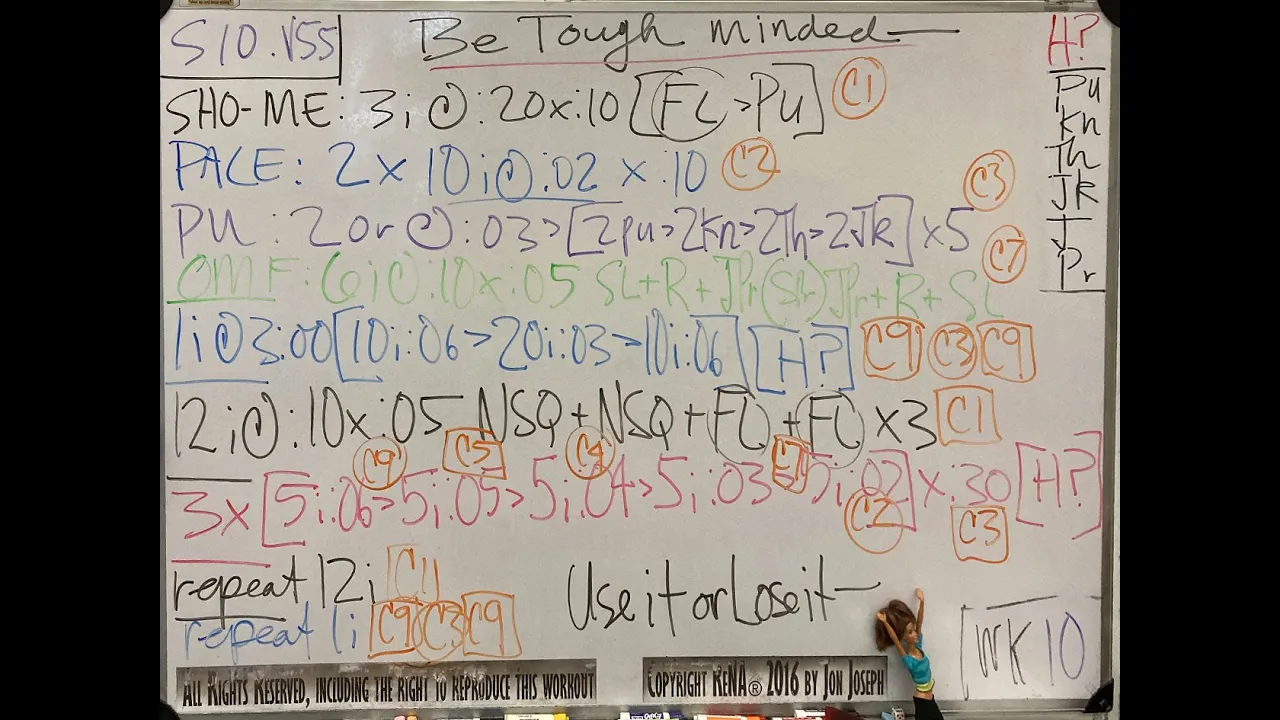 S10.V55
Be Tough minded
H?
Pu
Kn
Th
Jk
+
Pr
SHO-ME: 3i@:20x:10 [FC>PU] C1
PACE: 2x10i@:02 x :10 C2
C3
PU: 20r@:03>[2pu>2Kn>2Th>2Jk]x5
C7
OMF: 6i@:10x:05 SL+R+JPr(Str)JPr+R+SL
1i@3:00[10i:06>20i:03>10i:06] [H?] C9 C3 C9
12i@:10x:05 NSQ+NSQ+FC+FC x3 C1
C9 C5 C4 C7
3x[5i:06>5i:05>5i:04>5i:03>5i:02]x:30[H?]
C2 C3
repeat 12i C1
Use it or Lose it
repeat 1i C9 C3 C9
WK 10
ALL RIGHTS RESERVED, INCLUDING THE RIGHT TO REPRODUCE THIS WORKOUT
COPYRIGHT KENA® 2016 BY JON JOSEPH